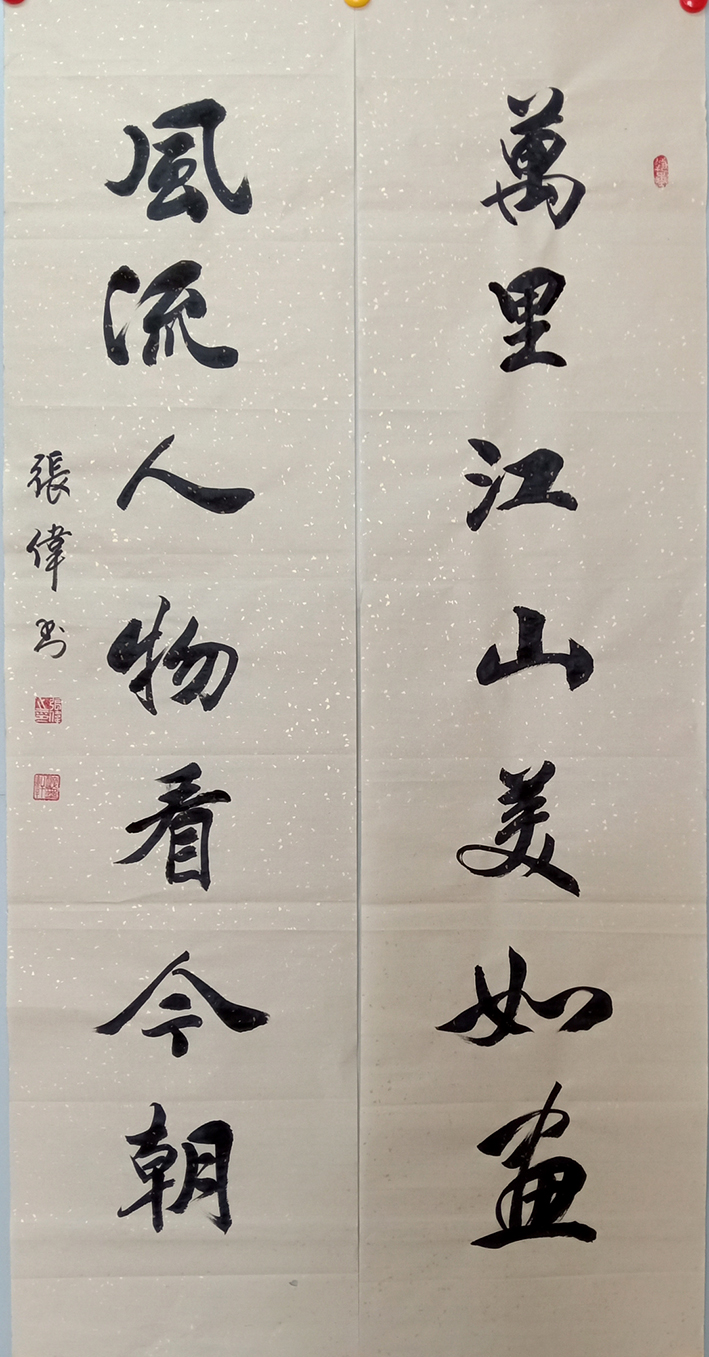 萬里江山美如画
風流人物看今朝
張偉书